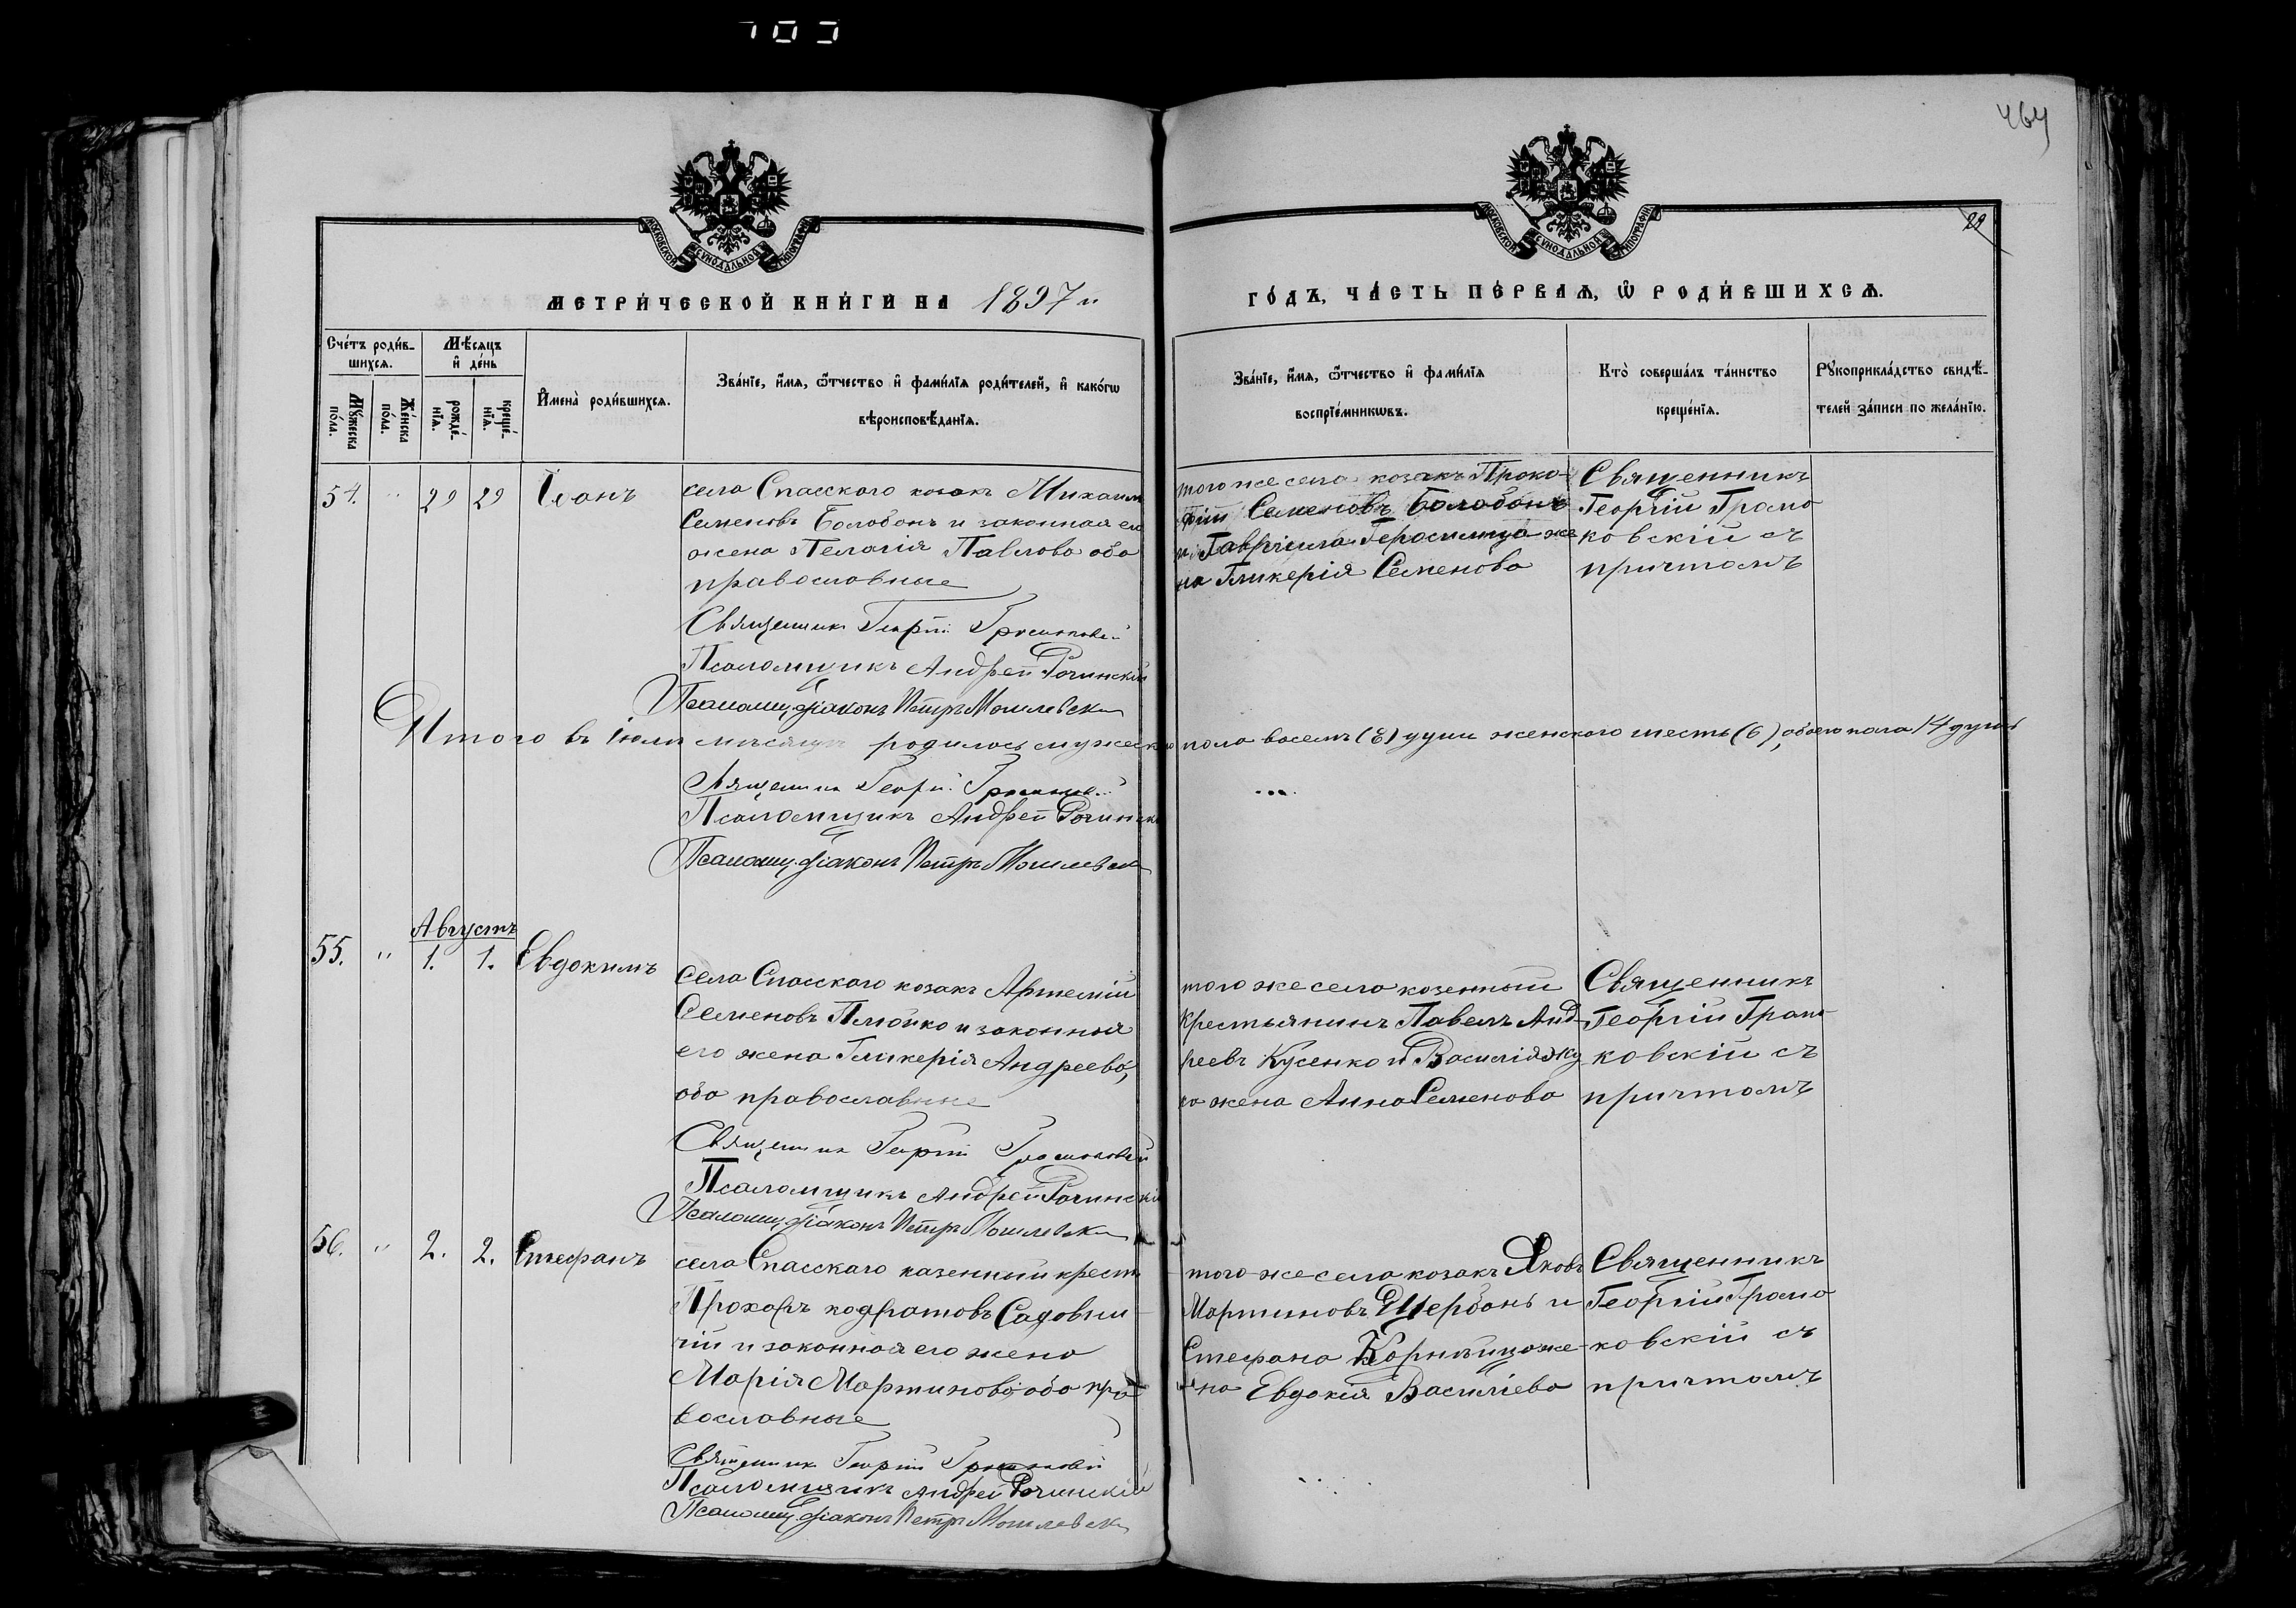 464
29
МОСКОВСКОЙ СУНОДАЛЬНОЙ ТИПОГРАФІИ
МОСКОВСКОЙ СУНОДАЛЬНОЙ ТИПОГРАФІИ
МЕТРИ́ЧЕСКОЙ КНИ́ГИ НА 1897 й
ГО́ДЪ, ЧА́СТЬ ПЕ́РВАѦ, Ѡ҆ РОДИ́ВШИХСѦ.
Сче́тъ роди́вшихсѧ.
Мꙋ́жеска по́ла.
Же́нска по́ла.
Мѣ́сѧцъ и҆ де́нь
рожде́нїѧ.
креще́нїѧ.
И҆мена̀ роди́вшихсѧ.
Зва́нїе, и҆́мѧ, ѻ҆́тчество и҆ фами́лїѧ роди́телей, и҆ како́гѡ
вѣроисповѣ́данїѧ.
Зва́нїе, и҆́мѧ, ѻ҆́тчество и҆ фами́лїѧ
воспрїе́мникѡвъ.
Кто̀ соверша́лъ та́инство
креще́нїѧ.
Рꙋкоприкла́дство свидѣ́-
телей за́писи по жела́нїю.
54. " 29 29 Іоанъ
села Спасскаго козакъ Михаилъ
Семеновъ Болобонъ и законная его
жена Пелагія Павлова оба
православные
Священникъ Георгій
Псаломщикъ Андрей Рочинскій
Псаломщ. діаконъ Петръ Могилевскій
того же села козакъ Проко-
фій Семеновъ Болобонъ
и Гавріила Герасимца же
на Гликерія Семенова
Священникъ
Георгій Грамо
ковскій съ
причтомъ
Итого въ Іюлѣ мѣсяцѣ родилось мужеска пола восемь (8) душъ женскаго шесть (6), обоего пола 14 душъ
Священникъ Георгій
Псаломщикъ Андрей Рочинскій
Псаломщ. діаконъ Петръ Могилевскій
Августъ
55. " 1. 1. Евдокимъ
села Спасского козакъ Артемій
Семеновъ Плюйко и законная
его жена Гликерія Андреева,
оба православные
Священникъ Георгій
Псаломщикъ Андрей Рочинскій
Псаломщ. діаконъ Петръ Могилевскій
того же села козенный
крестьянинъ Павелъ Анд-
реевъ Кусенко и Василія Жу
ка жена Анна Семенова
Священникъ
Георгій Грамо
ковскій съ
причтомъ
56. " 2. 2. Стефанъ
села Спасскаго казенный крест
Прохоръ кодратовъ Садовни
чій и законная его жена
Марія Мартинова, оба пра
вославные
Священникъ Георгій
Псаломщикъ Андрей Рочинскій
Псаломщ. діаконъ Петръ Могилевскій
того же села козакъ Яковъ
Мартиновъ Щербань и
Стефана Корнѣйца же-
на Евдокія Василіева
Священникъ
Георгій Грамо
ковскій съ
причтомъ